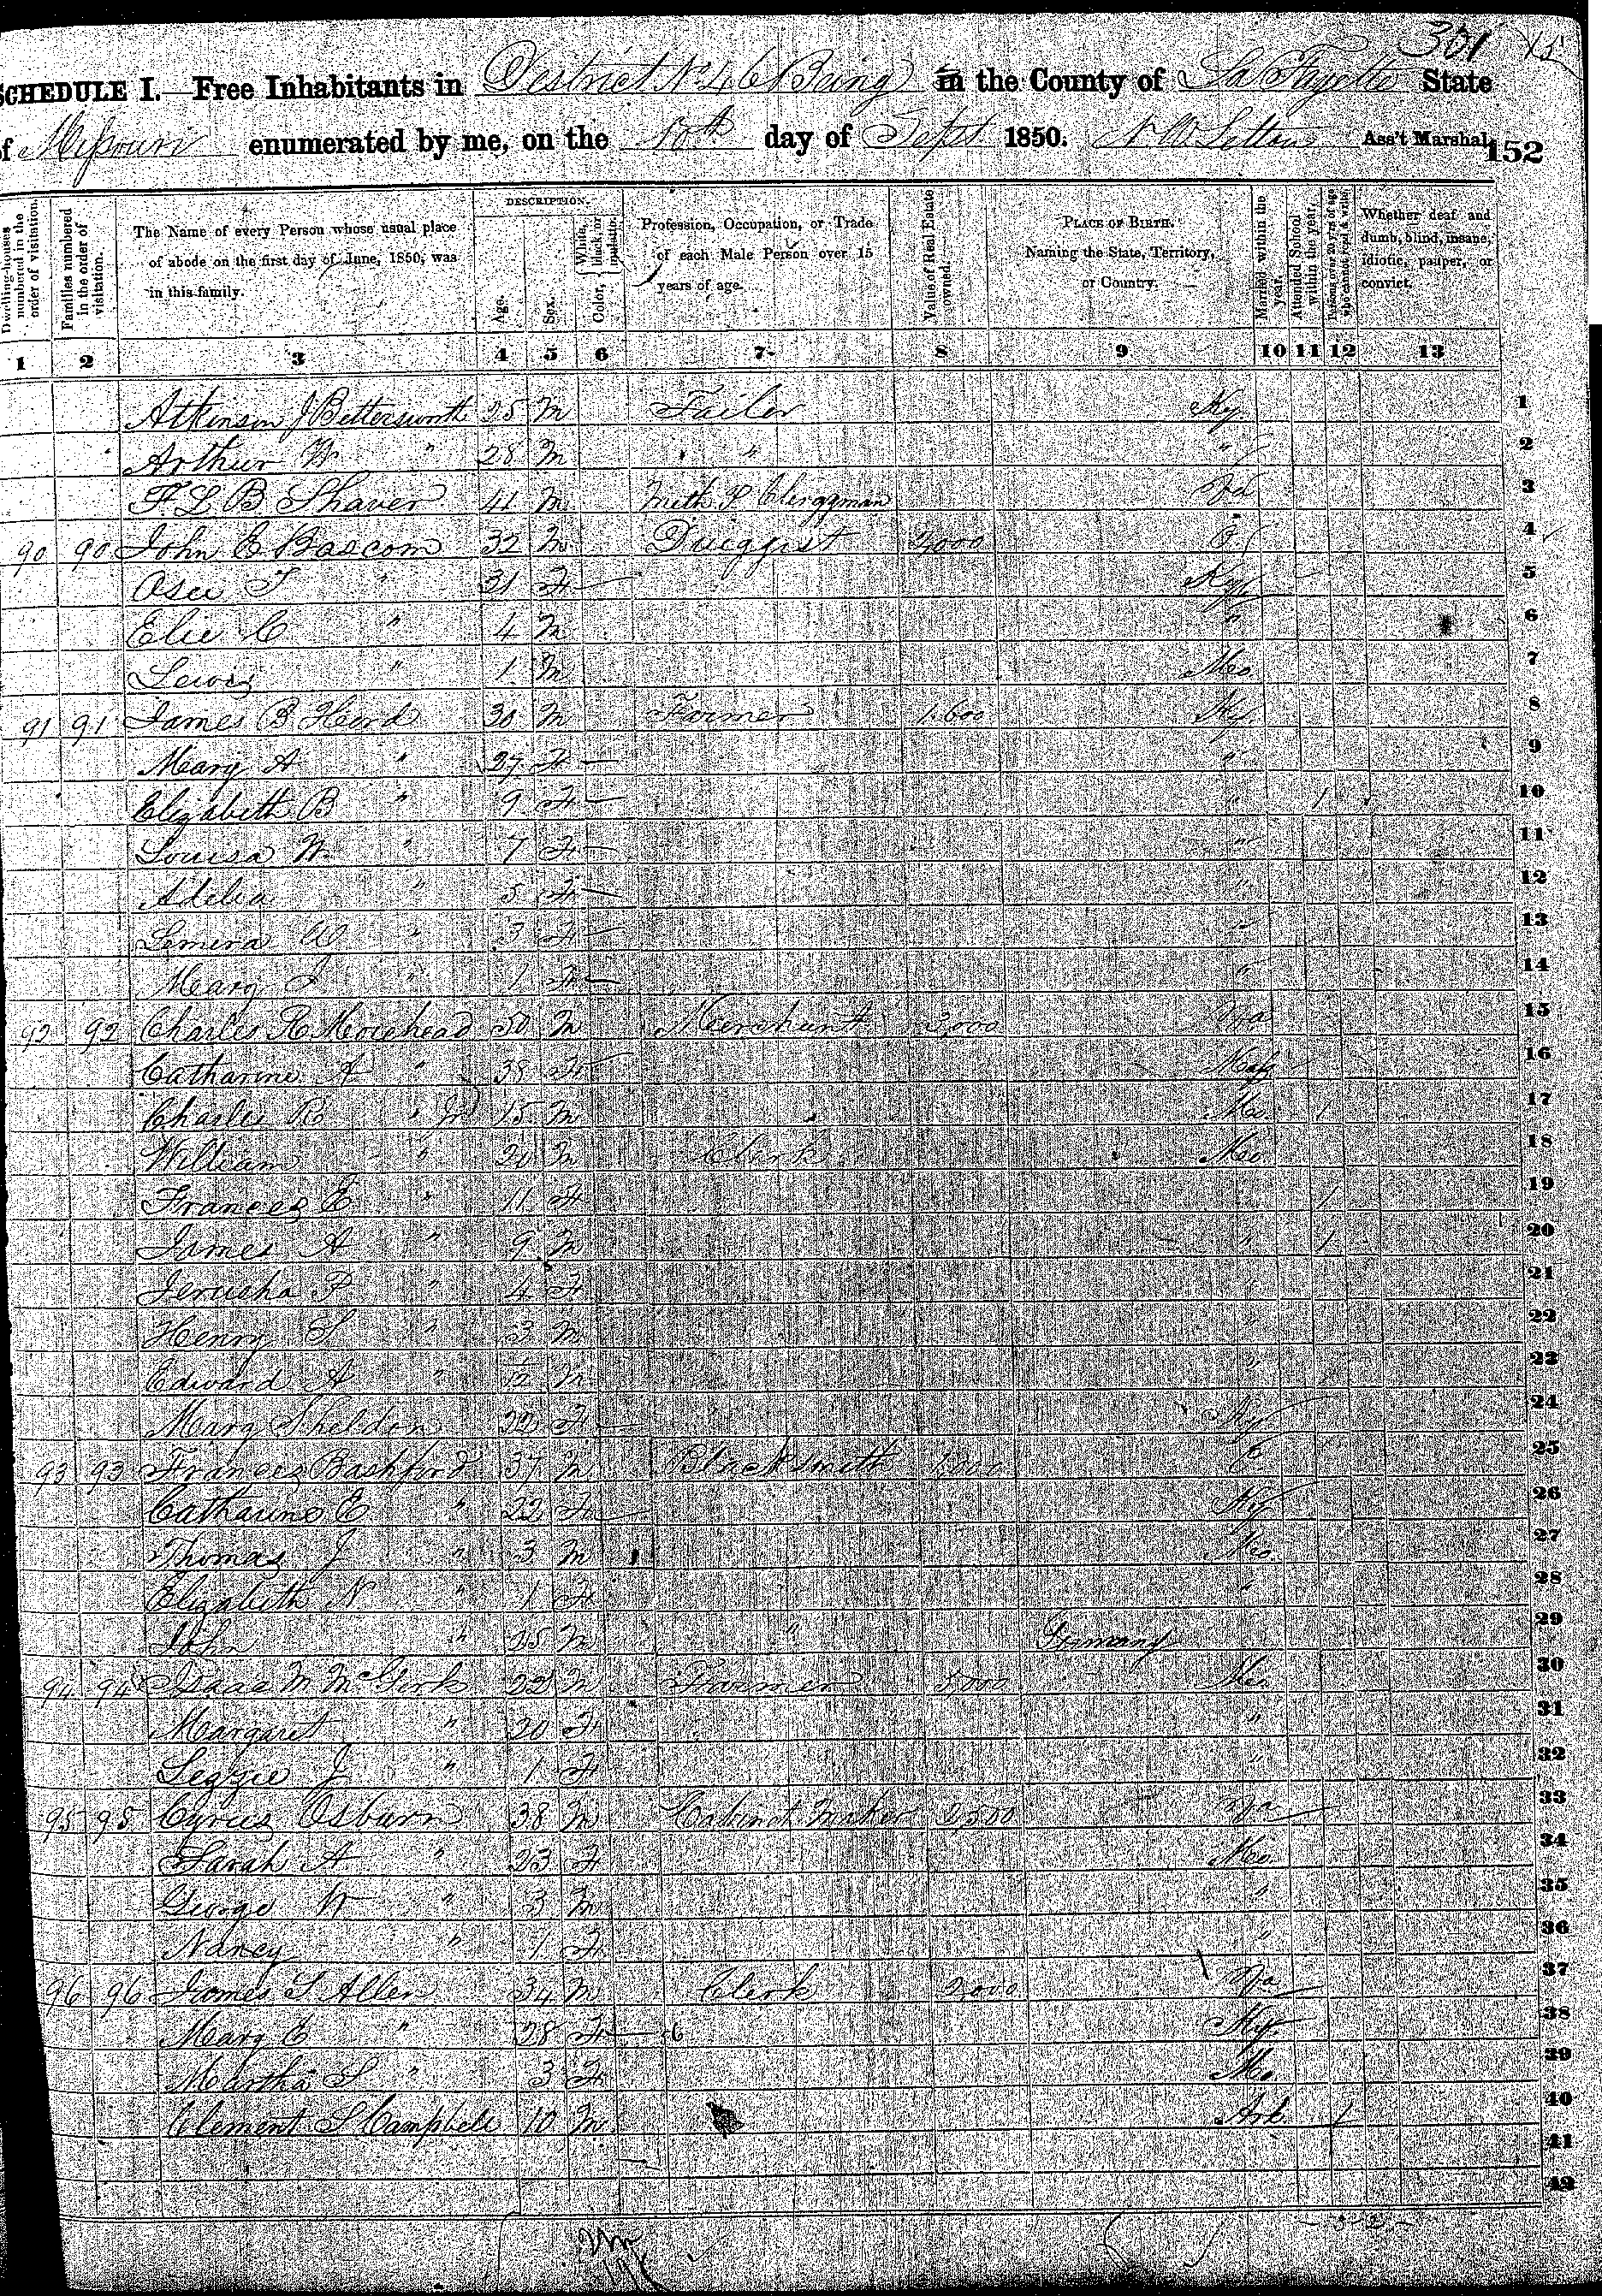 301
SCHEDULE I.—Free Inhabitants in District No 46 Being in the County of La Fayette State
of Missouri enumerated by me, on the 10th day of Sept 1850. Ass't Marshal.
152
Dwelling-houses numbered in the order of visitation.
Families numbered in the order of visitation.
The Name of every Person whose usual place of abode on the first day of June, 1850, was in this family.
DESCRIPTION.
Age.
Sex.
Color, { White, black, or mulatto.
Profession, Occupation, or Trade of each Male Person over 15 years of age.
Value of Real Estate owned.
PLACE OF BIRTH. Naming the State, Territory, or Country.
Married within the year.
Attended School within the year.
Persons over 20 y'rs of age who cannot read & write.
Whether deaf and dumb, blind, insane, idiotic, pauper, or convict.
1 2 3 4 5 6 7 8 9 10 11 12 13
Attenson J Bettersworth 25 M Tailor Ky. 1
Arthur W " 28 M " " 2
F L B Shaver 41 M Meth P Clergyman Va 3
90 90 John E Bascom 32 M Duiggist 2000 4
Osee T " 31 F Ky 5
Elie C " 4 M " 6
Lewis " 1 M Mo. 7
91 91 James B Hord 30 M Farmer 1600 Ky. 8
Mary A " 27 F " 9
Elizabeth B " 9 F " 1 10
Louisa W. " 7 F " 11
Adelia " 5 F " 12
W " 3 F " 13
Mary " 1 F " 14
92 92 Charles R Morehead 50 M Merchant 3000 Va 15
Catharine A " 38 F 16
Charles R " Jr 15 M Mo. 1 17
William " 20 M Clerk Mo 18
Frances E " 11 F 1 19
James A " 9 M " 1 20
Jerusha P " 4 F " 21
Henry S " 3 M " 22
Edward A " M " 23
Mary Sheldon 22 F Ky 24
93 93 Frances Bashford 37 M Blacksmith 25
Catharine E " 22 F Ky 26
Thomas J " 3 M Mo. 27
Elizabeth N " 1 F " 28
John " 25 M " Germany 29
94 94 Isaac M McGirk 22 M Farmer Mo. 30
Margaret " 20 F " 31
Lezzie J " 1 F " 32
95 95 Cyrus Osburn 38 M Cabinet Maker 2500 Va 33
Sarah A " 23 F Mo. 34
George W " 3 M " 35
Nancy " 1 F " 36
96 96 James S Allen 34 M Clerk 2000 Va 37
Mary E " 28 F Ky. 38
Martha S " 3 F Mo. 39
Clement S Campbell 10 M Ark 1 40
41
42